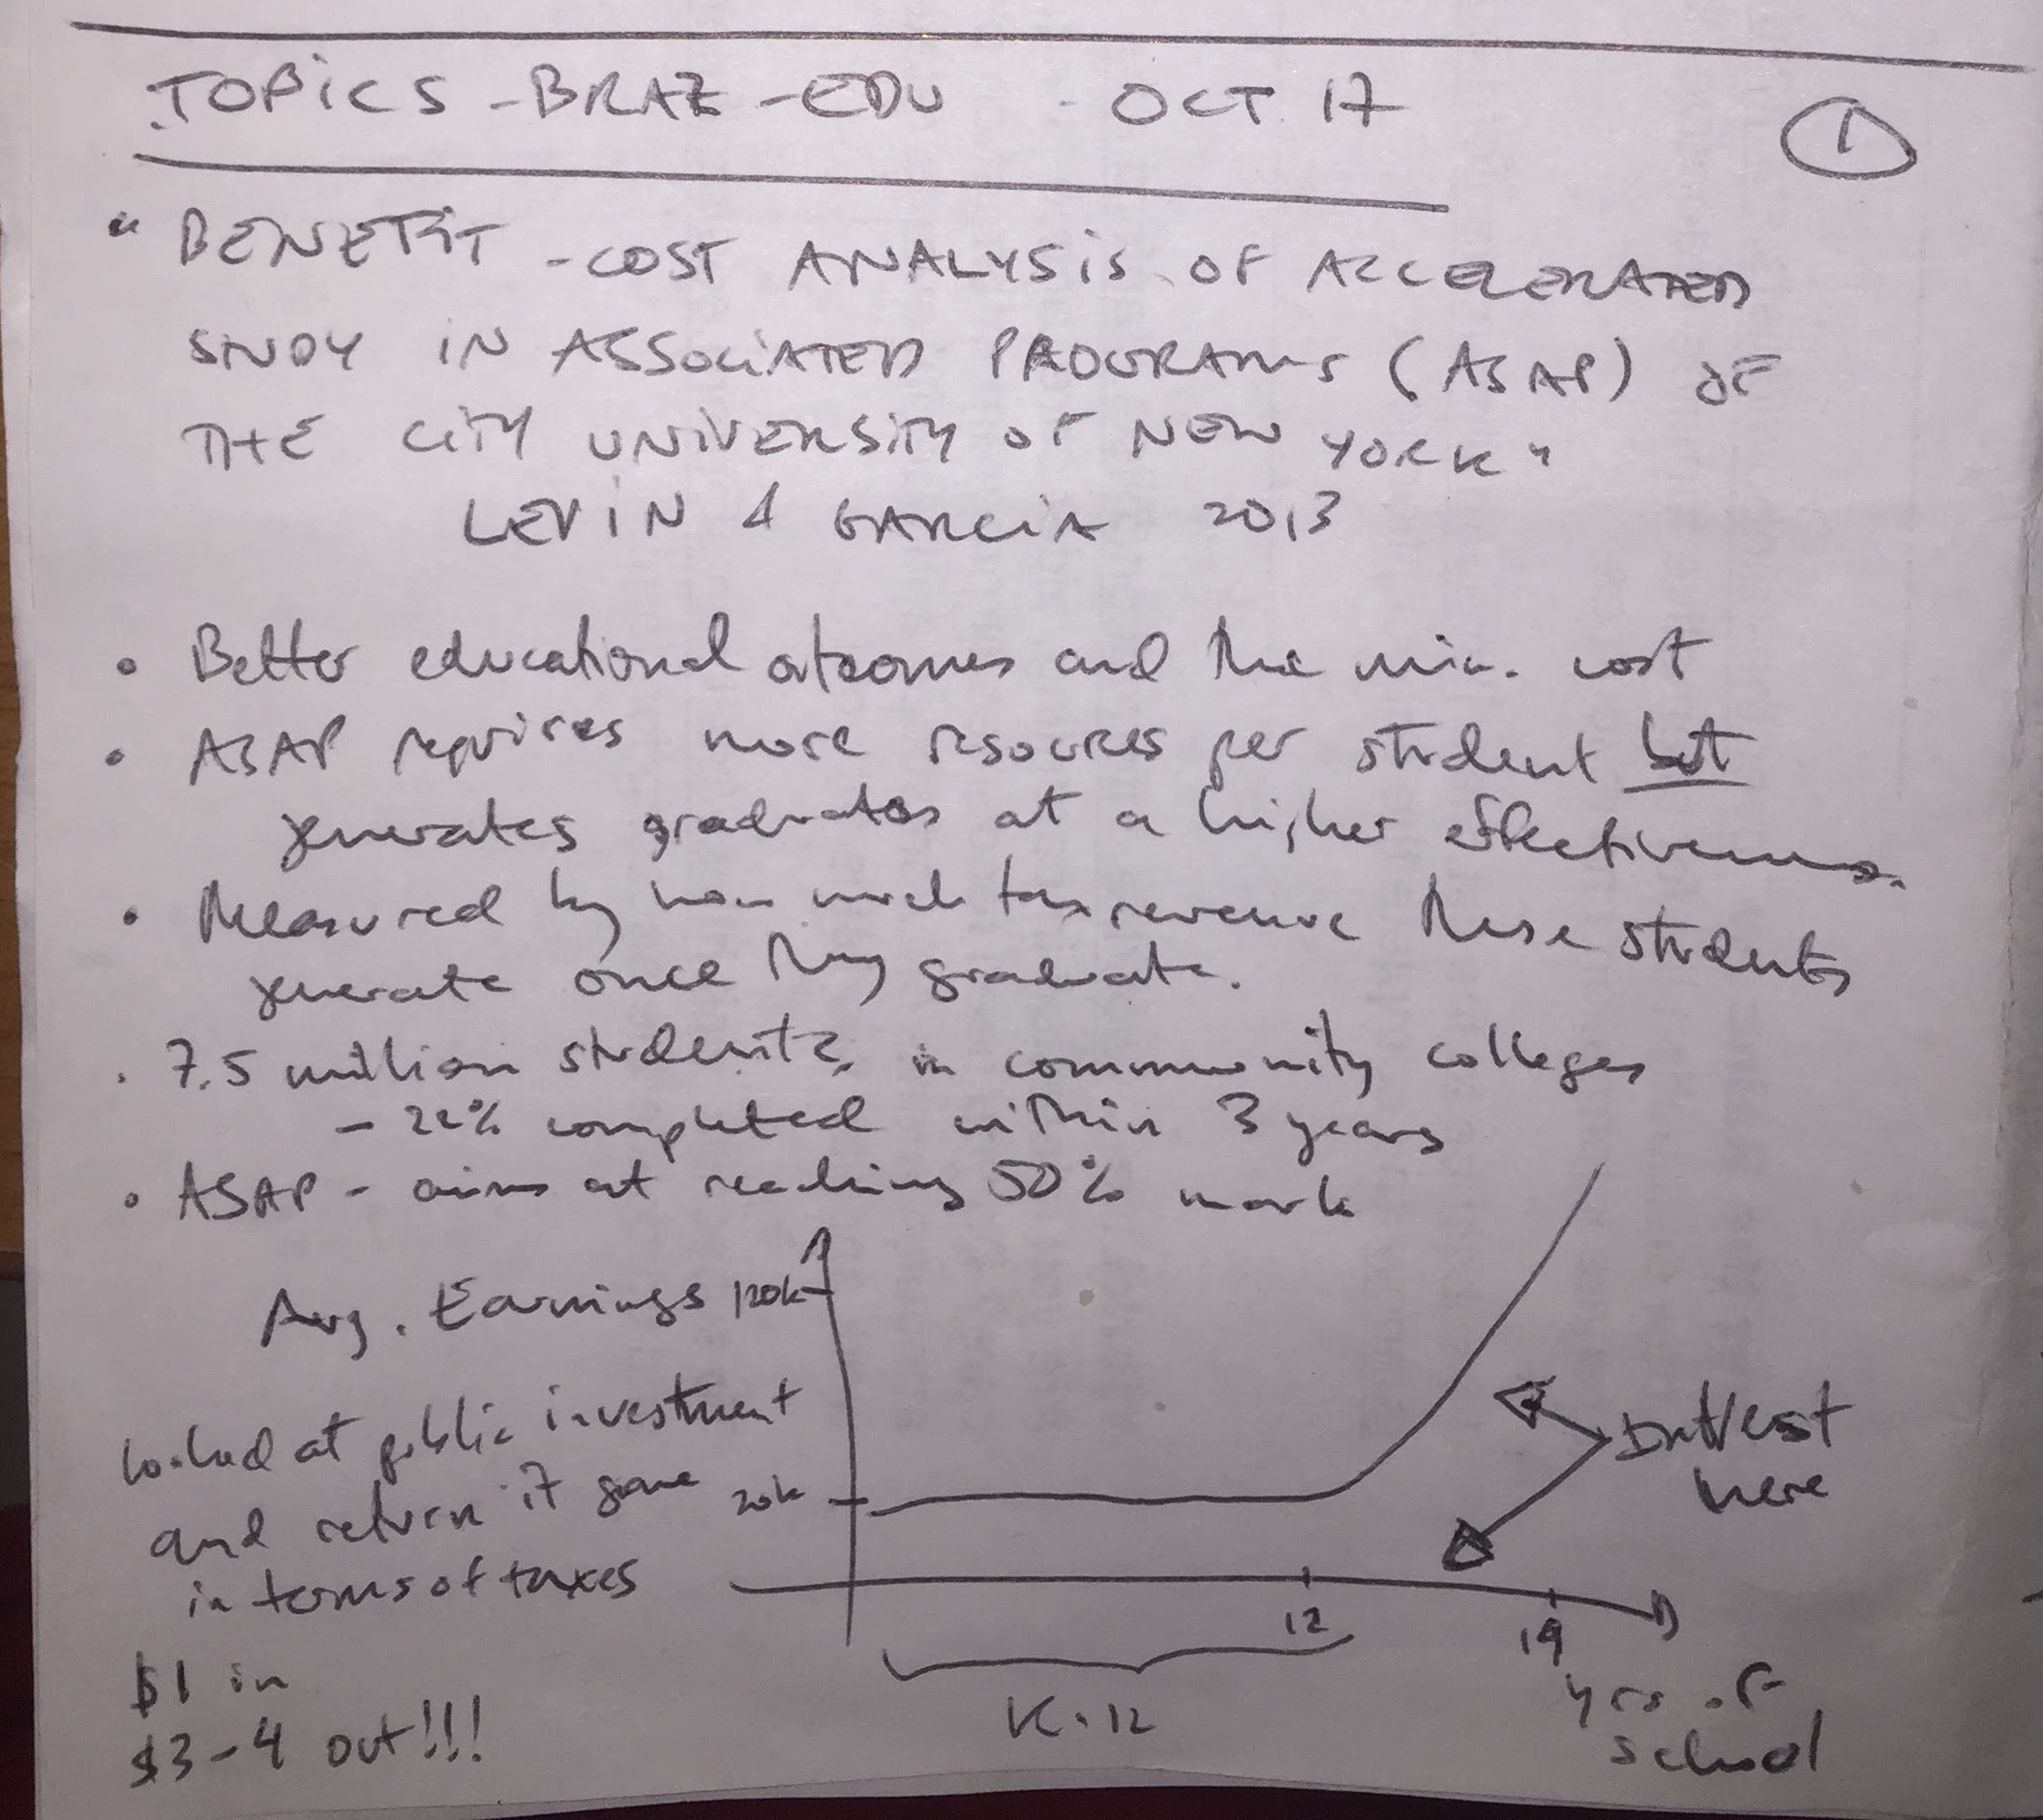 TOPICS - BRAZ - EDU - OCT 17
1
"BENEFIT - COST ANALYSIS OF ACCELERATED
STUDY IN ASSOCIATED PROGRAMS (ASAP) OF
THE CITY UNIVERSITY OF NEW YORK"
LEVIN & GARCIA 2013
• Better educational outcomes and the min. cost
• ASAP requires more resources per student but
generates graduates at a higher effectiveness.
• Measured by how much tax revenue these students
generate once they graduate.
• 7.5 million students in community colleges
- 22% completed within 3 years
• ASAP - aims at reaching 50% mark
Avg. Earnings 120k
looked at public investment
and return it gave
in terms of taxes
$1 in
$3-4 out!!!
20k
Invest
here
12
19
K-12
yrs of
school